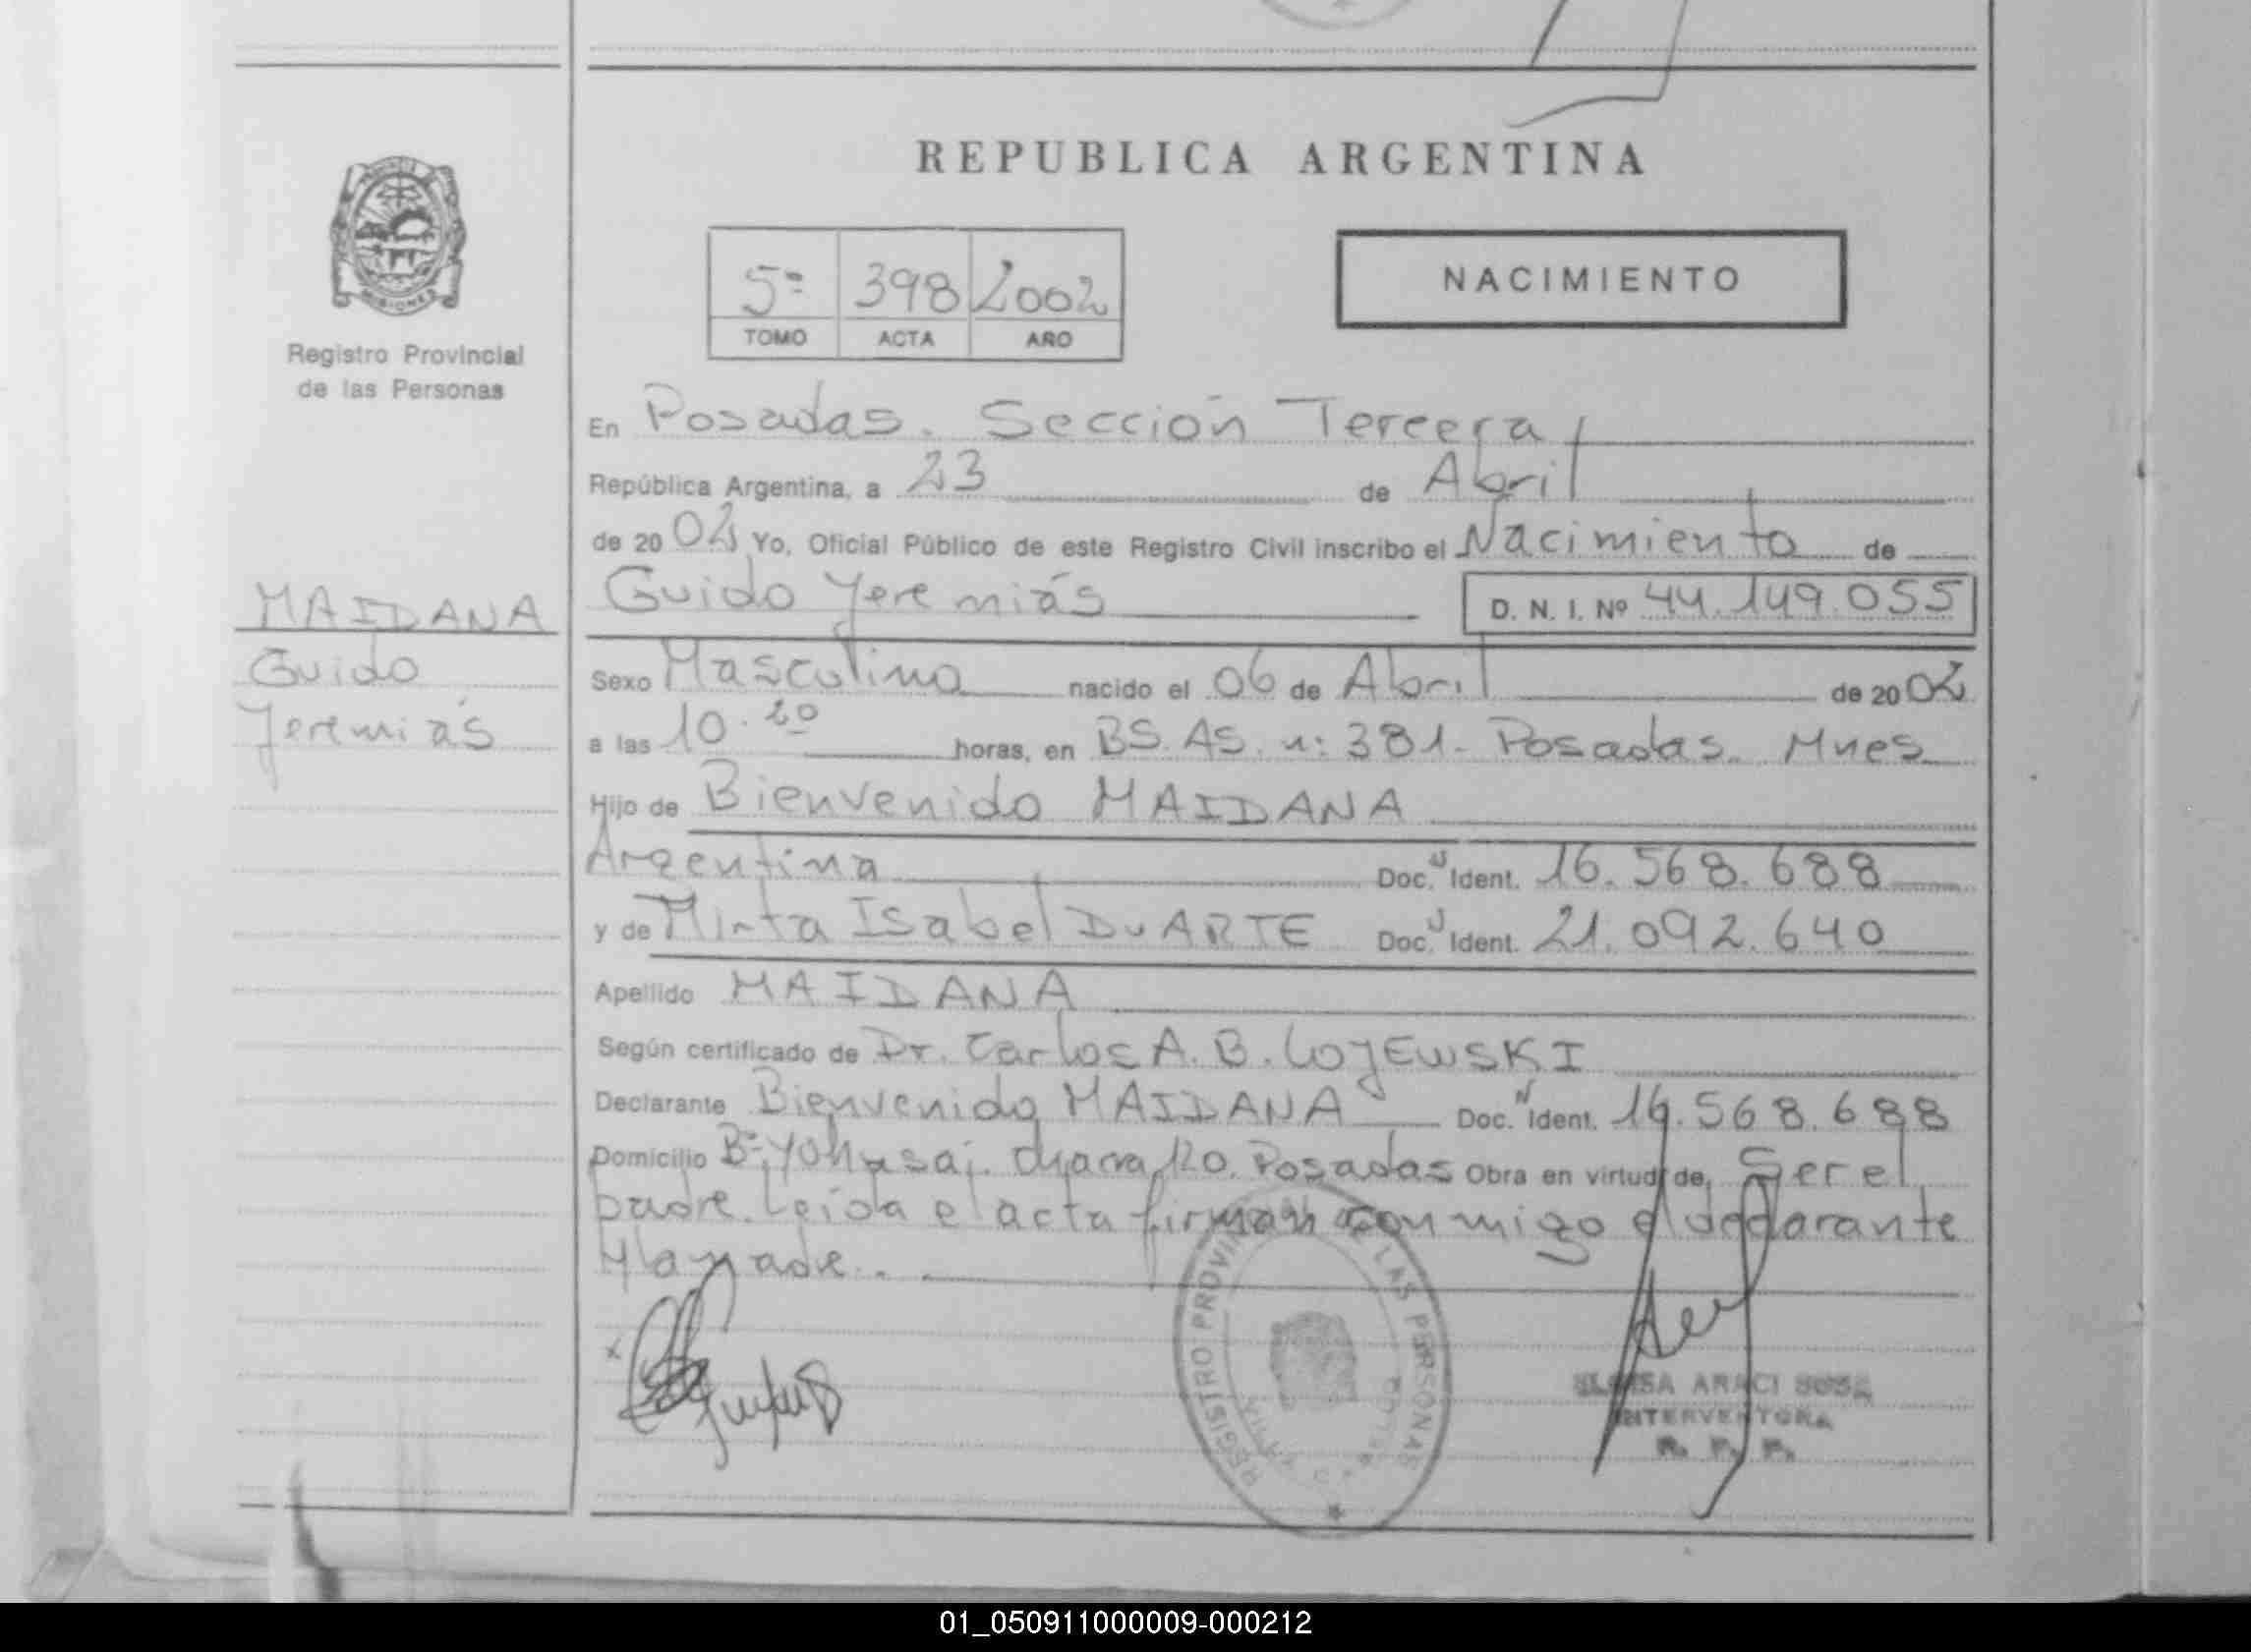 REPUBLICA ARGENTINA
5º 398 2002
TOMO ACTA AÑO
NACIMIENTO
MISIONES
Registro Provincial
de las Personas
MAIDANA
Guido
Jeremiás
En Posadas. Sección Tercera
República Argentina, a 23 de Abril
de 20 02 Yo, Oficial Público de este Registro Civil inscribo el Nacimiento de
Guido Jeremiás D. N. I. Nº 44.149.055
Sexo Masculino nacido el 06 de Abril de 20 02
a las 10.20 horas, en BS. AS. n: 381. Posadas. Mnes
Hijo de Bienvenido MAIDANA
Argentina Doc. Ident. 16.568.688
y de Mirta Isabel DUARTE Doc. Ident. 21.092.640
Apellido MAIDANA
Según certificado de Dr. Carlos A. B. LOJEWSKI
Declarante Bienvenido MAIDANA Doc. Ident. 16.568.688
Domicilio Bº Yohasa. chacra 120. Posadas Obra en virtud de Ser el
padre. Leida el acta firman conmigo el declarante
y la madre.
REGISTRO PROVINCIAL DE LAS PERSONAS
ARACI SOSA
INTERVENTORA
R. P. P.
01_050911000009-000212